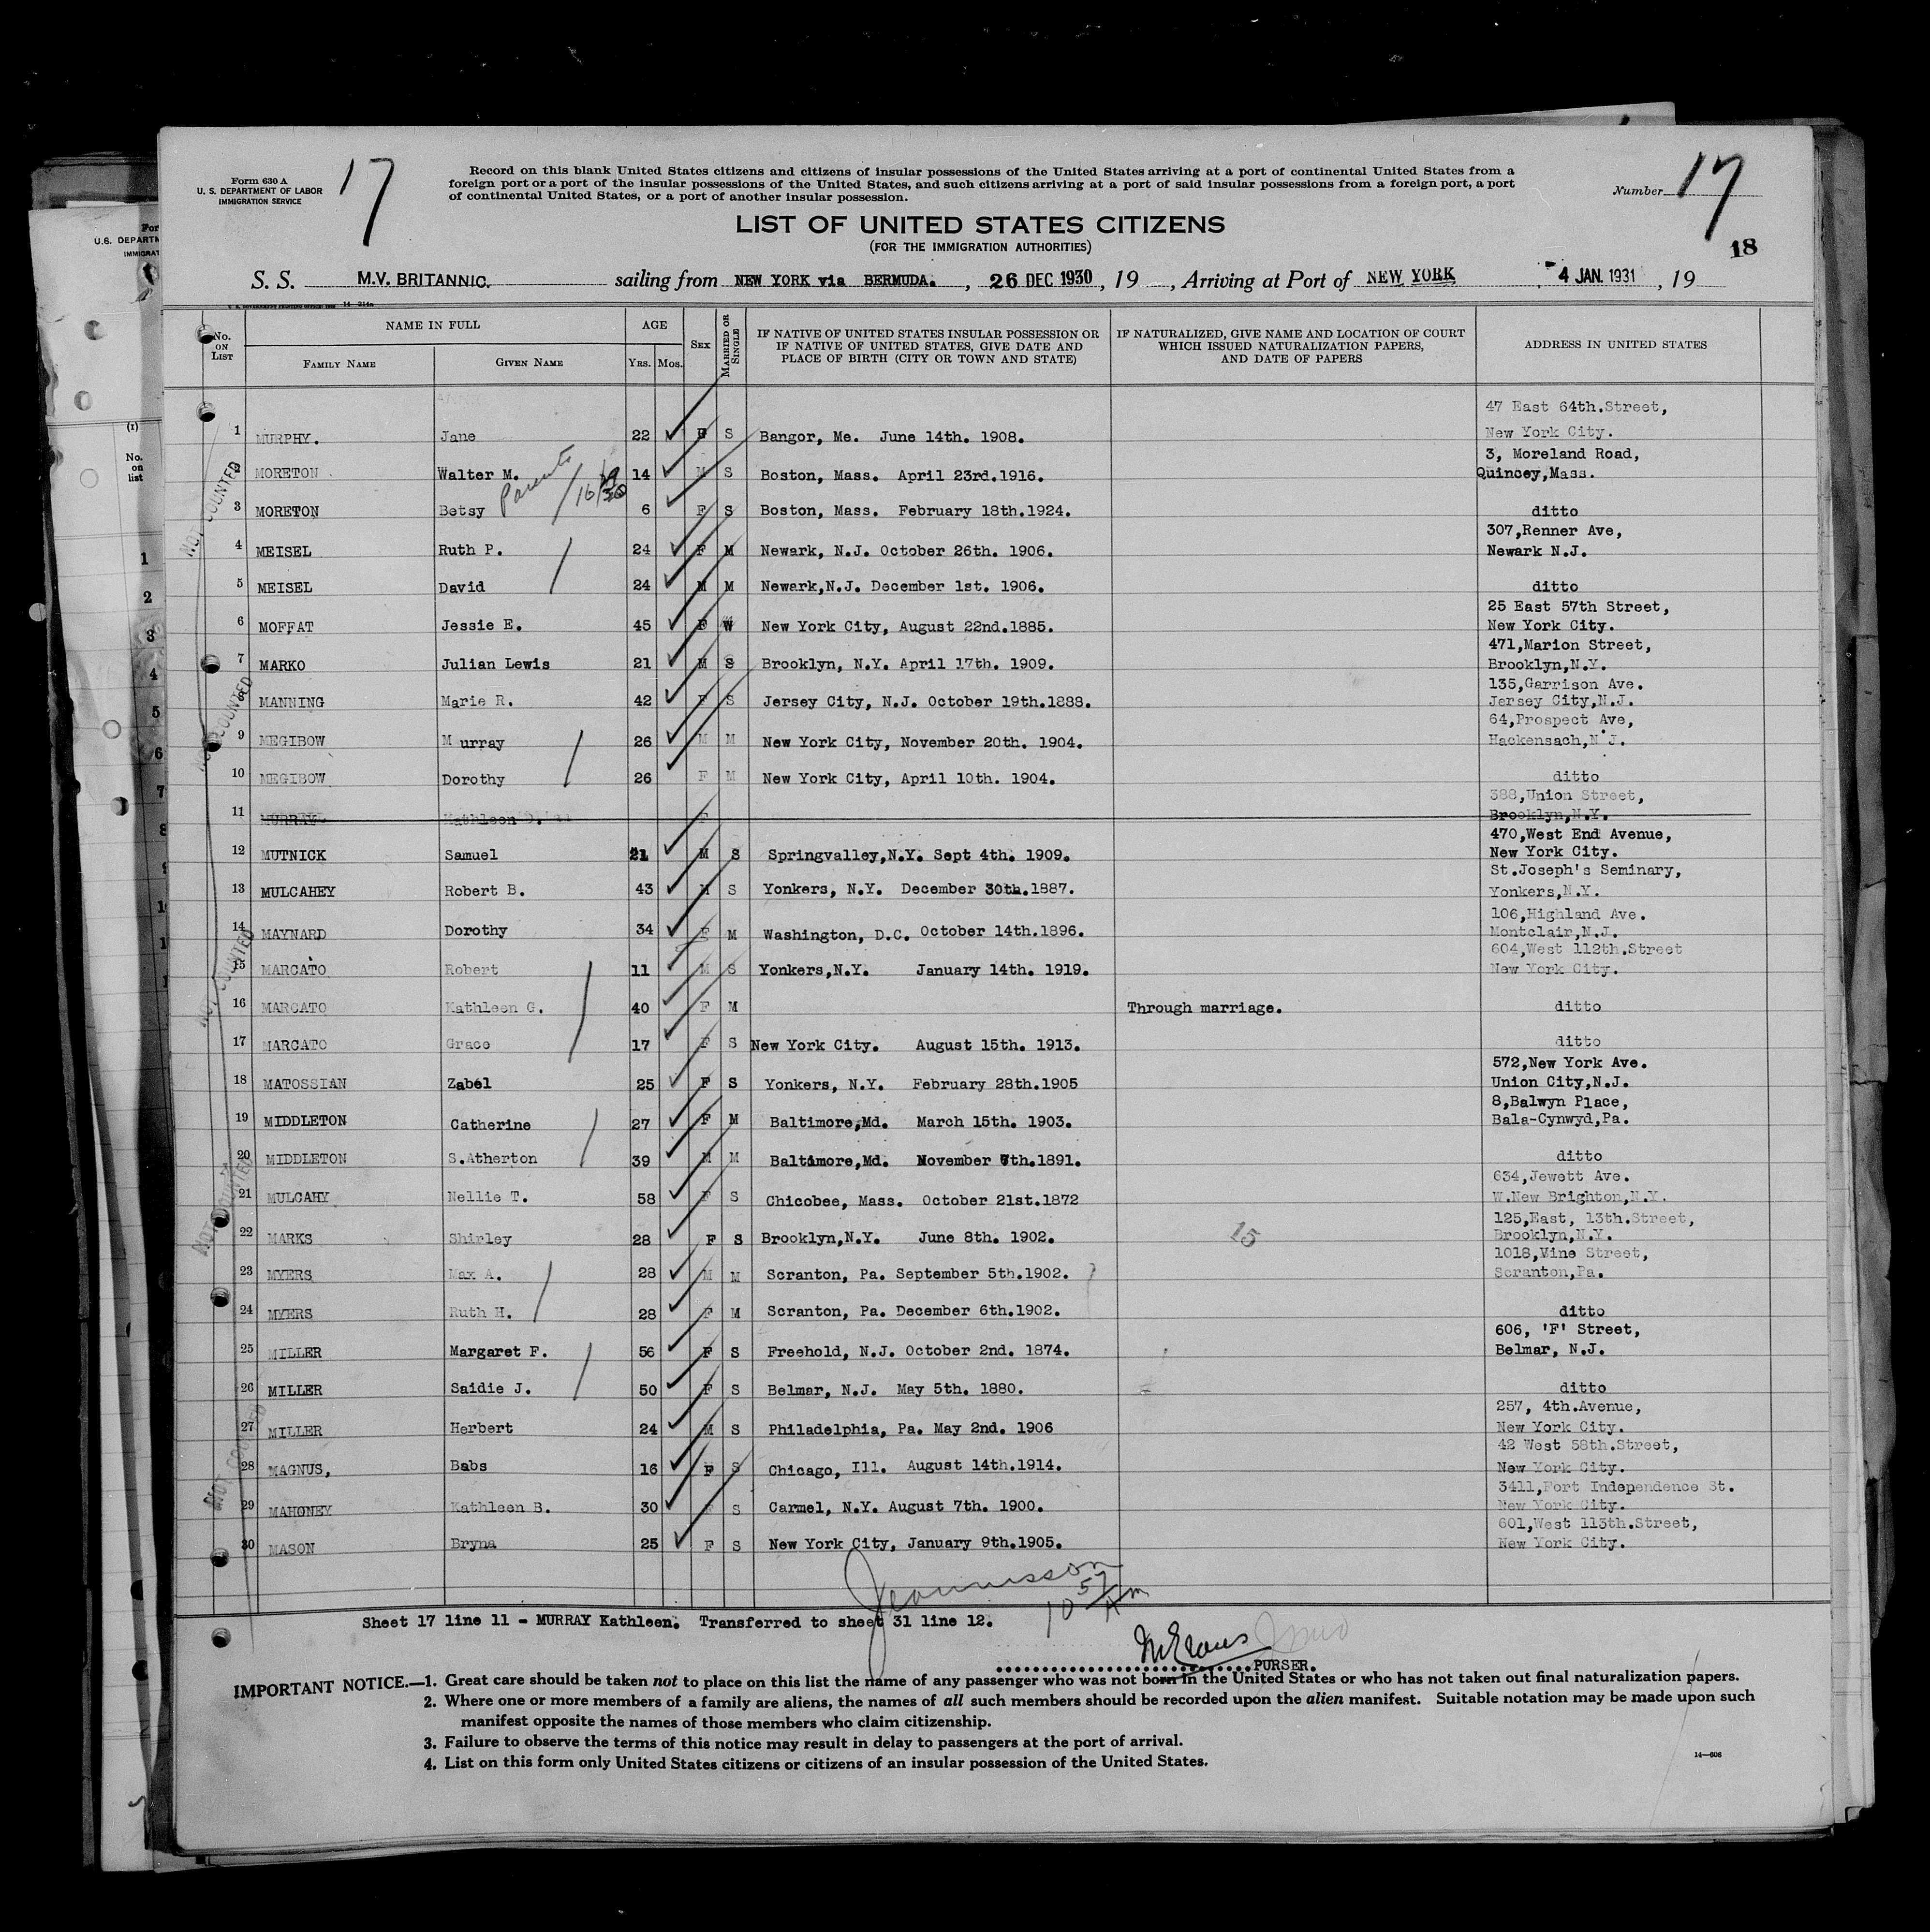 Form 630 A
U. S. DEPARTMENT OF LABOR
IMMIGRATION SERVICE
17
Record on this blank United States citizens and citizens of insular possessions of the United States arriving at a port of continental United States from a
foreign port or a port of the insular possessions of the United States, and such citizens arriving at a port of said insular possessions from a foreign port, a port
of continental United States, or a port of another insular possession.
Number 17
18
LIST OF UNITED STATES CITIZENS
(FOR THE IMMIGRATION AUTHORITIES)
S. S. M.V. BRITANNIC. sailing from NEW YORK via BERMUDA. , 26 DEC 1930 , 19 , Arriving at Port of NEW YORK 4 JAN. 1931 , 19
No. ON LIST NAME IN FULL AGE SEX MARRIED OR SINGLE IF NATIVE OF UNITED STATES INSULAR POSSESSION OR IF NATIVE OF UNITED STATES, GIVE DATE AND PLACE OF BIRTH (CITY OR TOWN AND STATE) IF NATURALIZED, GIVE NAME AND LOCATION OF COURT WHICH ISSUED NATURALIZATION PAPERS, AND DATE OF PAPERS ADDRESS IN UNITED STATES
FAMILY NAME GIVEN NAME YRS. MOS.
47 East 64th.Street,
1 MURPHY. Jane 22 F S Bangor, Me. June 14th. 1908. New York City.
3, Moreland Road,
2 MORETON Walter M. 14 M S Boston, Mass. April 23rd.1916. Quincey,Mass.
Parents
3 MORETON Betsy 6 F S Boston, Mass. February 18th.1924. ditto
307,Renner Ave,
4 MEISEL Ruth P. 24 F M Newark, N.J. October 26th. 1906. Newark N.J.
5 MEISEL David 24 M M Newark,N.J. December 1st. 1906. ditto
25 East 57th Street,
6 MOFFAT Jessie E. 45 F W New York City, August 22nd.1885. New York City.
471,Marion Street,
7 MARKO Julian Lewis 21 M S Brooklyn, N.Y. April 17th. 1909. Brooklyn,N.Y.
135,Garrison Ave.
8 MANNING Marie R. 42 F S Jersey City, N.J. October 19th.1888. Jersey City,N.J.
64,Prospect Ave,
9 MEGIBOW M urray 26 M M New York City, November 20th. 1904. Hackensach,N.J.
10 MEGIBOW Dorothy 26 F M New York City, April 10th. 1904. ditto
388,Union Street,
11 MURRAY Kathleen F Brooklyn,N.Y.
470,West End Avenue,
12 MUTNICK Samuel 21 M S Springvalley,N.Y. Sept 4th. 1909. New York City.
St.Joseph's Seminary,
13 MULCAHEY Robert B. 43 M S Yonkers, N.Y. December 30th.1887. Yonkers,N.Y.
106,Highland Ave.
14 MAYNARD Dorothy 34 F M Washington, D.C. October 14th.1896. Montclair,N.J.
604,West 112th.Street
15 MARCATO Robert 11 M S Yonkers,N.Y. January 14th. 1919. New York City.
16 MARCATO Kathleen G. 40 F M Through marriage. ditto
17 MARCATO Grace 17 F S New York City. August 15th. 1913. ditto
572,New York Ave.
18 MATOSSIAN Zabel 25 F S Yonkers, N.Y. February 28th.1905 Union City,N.J.
8,Balwyn Place,
19 MIDDLETON Catherine 27 F M Baltimore,Md. March 15th. 1903. Bala-Cynwyd,Pa.
20 MIDDLETON S.Atherton 39 M M Baltimore,Md. November 7th.1891. ditto
634,Jewett Ave.
21 MULCAHY Nellie T. 58 F S Chicobee, Mass. October 21st.1872 W.New Brighton,N.Y.
125,East, 13th.Street,
22 MARKS Shirley 28 F S Brooklyn,N.Y. June 8th. 1902. 15 Brooklyn,N.Y.
1018,Vine Street,
23 MYERS Max A. 28 M M Scranton, Pa. September 5th.1902. Scranton,Pa.
24 MYERS Ruth H. 28 F M Scranton, Pa. December 6th.1902. ditto
606, 'F' Street,
25 MILLER Margaret F. 56 F S Freehold, N.J. October 2nd. 1874. Belmar, N.J.
26 MILLER Saidie J. 50 F S Belmar, N.J. May 5th. 1880. ditto
257, 4th.Avenue,
27 MILLER Herbert 24 M S Philadelphia, Pa. May 2nd. 1906 New York City.
42 West 58th.Street,
28 MAGNUS, Babs 16 F S Chicago, Ill. August 14th.1914. New York City.
3411,Fort Independence St.
29 MAHONEY Kathleen B. 30 F S Carmel, N.Y. August 7th. 1900. New York City.
601,West 113th.Street,
30 MASON Bryna 25 F S New York City, January 9th.1905. New York City.
Sheet 17 line 11 - MURRAY Kathleen. Transferred to sheet 31 line 12.
PURSER.
IMPORTANT NOTICE.—1. Great care should be taken not to place on this list the name of any passenger who was not born in the United States or who has not taken out final naturalization papers.
2. Where one or more members of a family are aliens, the names of all such members should be recorded upon the alien manifest. Suitable notation may be made upon such
manifest opposite the names of those members who claim citizenship.
3. Failure to observe the terms of this notice may result in delay to passengers at the port of arrival.
4. List on this form only United States citizens or citizens of an insular possession of the United States.
14—608